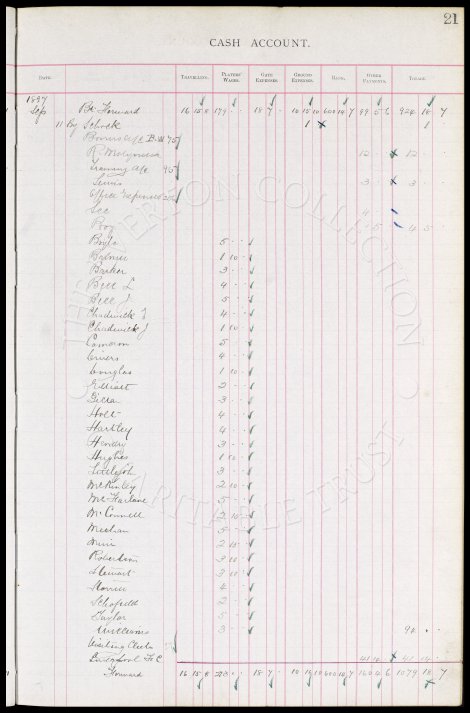 21
CASH ACCOUNT.
DATE. TRAVELLING. PLAYERS' WAGES. GATE EXPENSES. GROUND EXPENSES. BANK. OTHER PAYMENTS. TOTALS.
1897
Sep Bt Forward 16 15 8 179 - - 18 7 - 10 15 10 600 14 7 99 5 6 924 18 7
11 By 1 1
R Molyneux 12 - - 12
Training a/c
3 - - 3
Office Expenses
Lee 4
4 5
Boyle 5 - -
Balmer 1 10 -
Barker 3 - -
Bell L 4 - -
Bell J 5 - -
Chadwick T 4 - -
Chadwick J 1 10 -
Cameron 5 - -
4 - -
Douglas 1 10 -
Elliott 2 - -
3 - -
Holt 4 - -
Hartley 4 - -
Hendry 3 - -
Hughes 1 10 -
3 - -
McKinley 2 10 -
McFarlane 5 - -
McConnell 2 10 -
Meehan 5 - -
Muir 2 15 -
Robertson 3 10 -
Stewart 3 10 -
Storrier 4 - -
Schofield 2 - -
Taylor 5 - -
Williams 3 - - 94 - -
Visiting Clubs
Liverpool F C 41 14 - 41 14 -
Forward 16 15 8 273 - - 18 7 - 10 16 10 600 14 7 160 4 6 1079 18 7
THE EVERTON COLLECTION
CHARITABLE TRUST